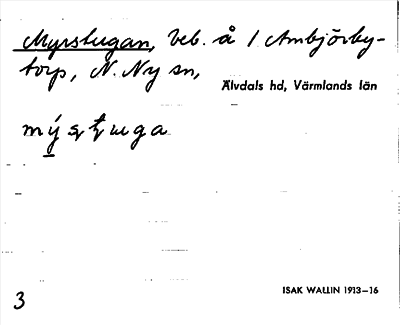 Myrstugan, beb. å / Ambjörby-
torp, N. Ny sn,
Älvdals hd, Värmlands län
ISAK WALLIN 1913–16
3